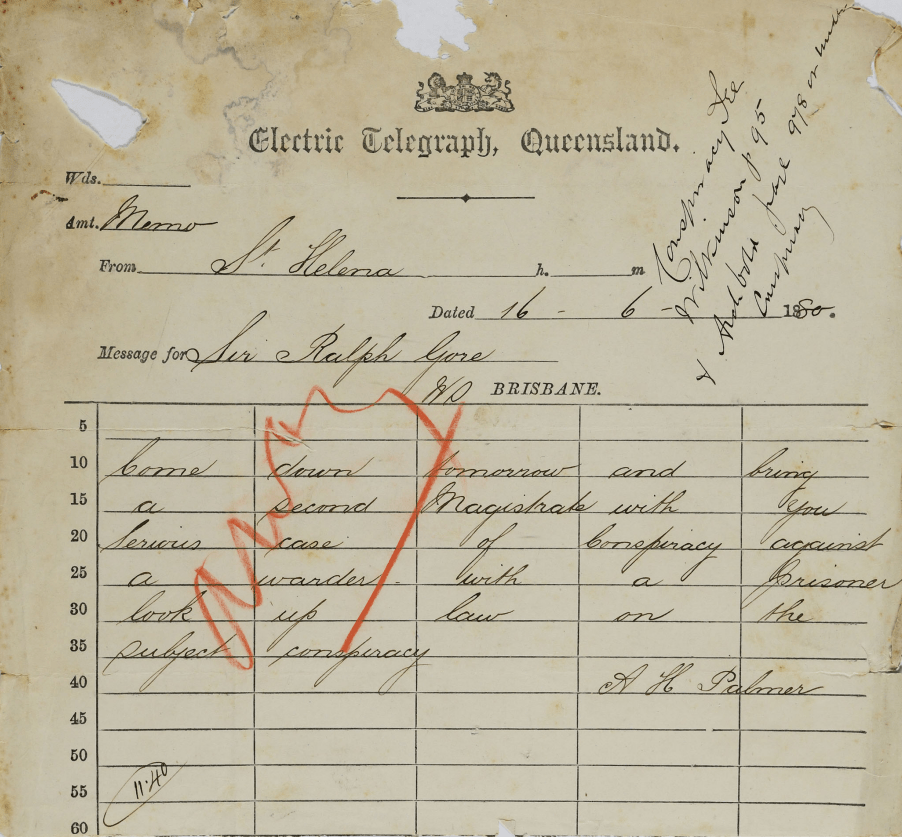 Electric Telegraph, Queensland.
Conspiracy See
Wilkinson p 95
& Archbold page 978 or under
Conspiracy
Wds.
Amt. Memo
From St. Helena h. m
Dated 16 - 6 - 1880.
Message for Sir Ralph Gore
BRISBANE.
5
10 Come down tomorrow and bring
15 a second Magistrate with You
20 Serious case of Conspiracy against
25 a warder with a prisoner
30 look up law on the
35 subject conspiracy
40 A H Palmer
45
50
11.40
55
60